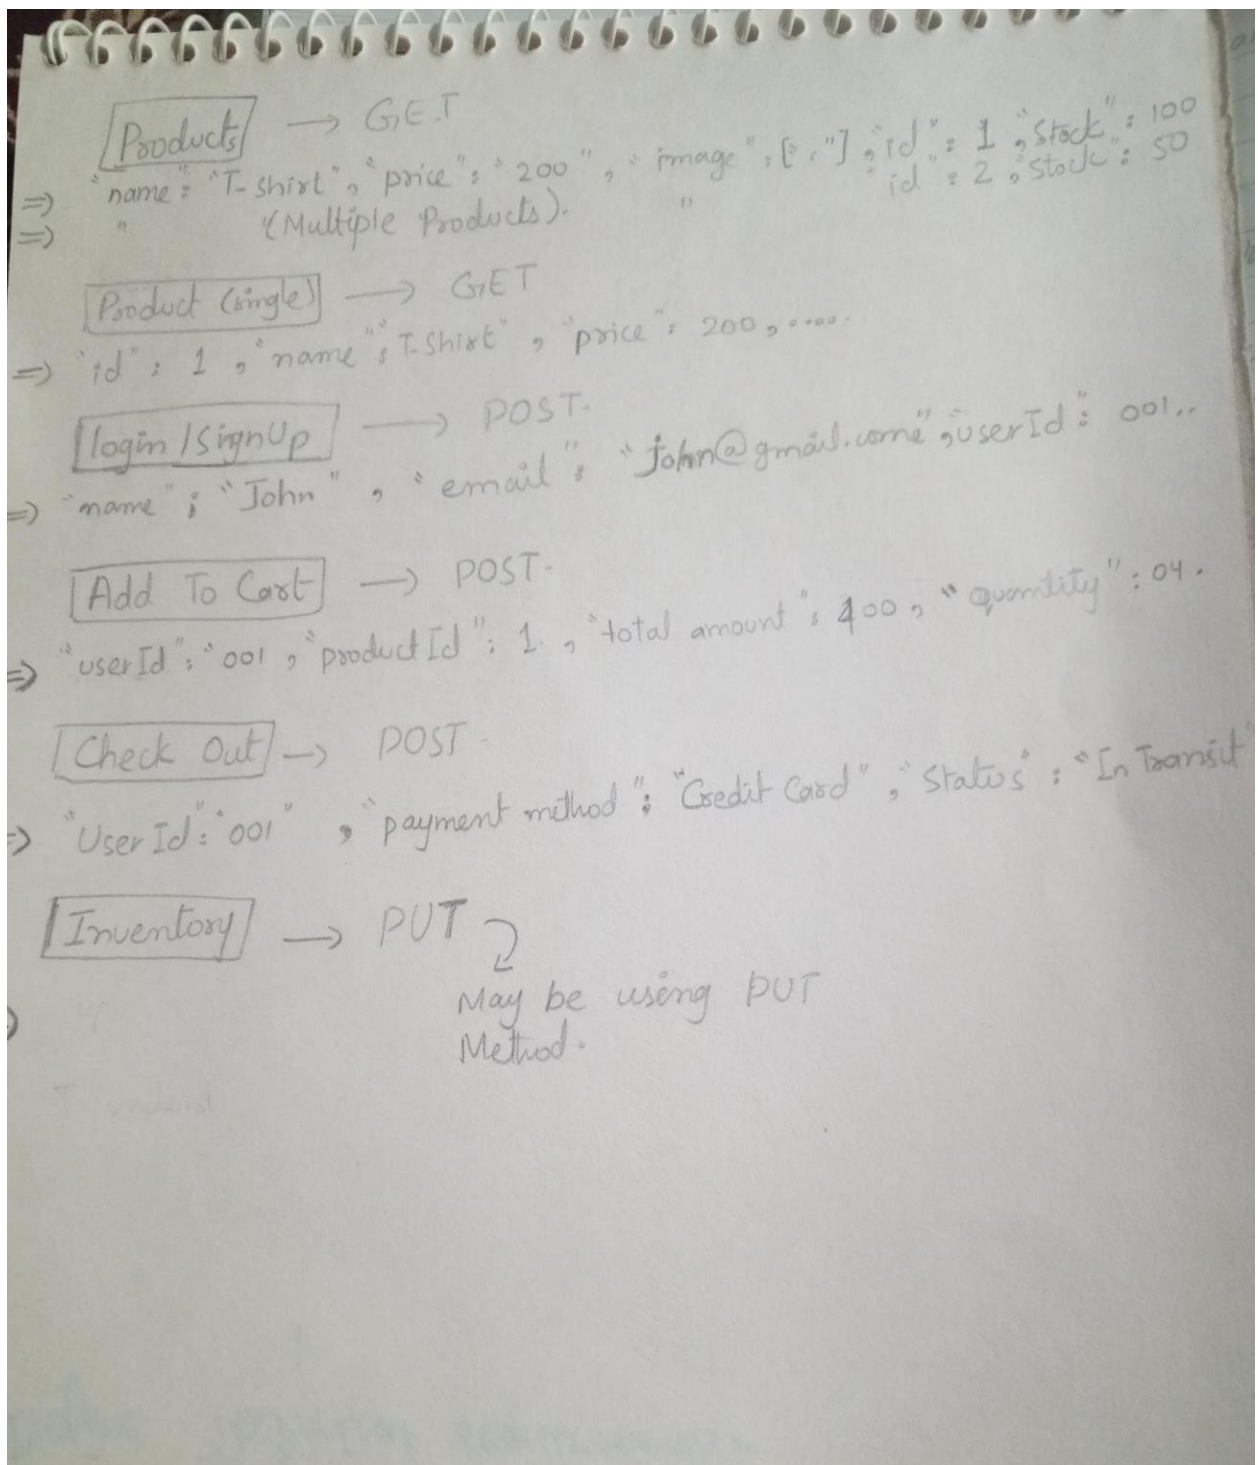 Products → GET
⇒ "name": "T-shirt", "price": "200", "image": [" "], "id": 1, "Stock": 100
⇒ " (Multiple Products). " "id": 2, "Stock": 50
Product (single) → GET
⇒ "id": 1, "name": "T-Shirt", "price": 200, .....
login / SignUp → POST.
⇒ "name"; "John", "email": "john@gmail.come", "userId": 001..
Add To Cart → POST.
⇒ "userId": "001, "productId": 1., "total amount": 400, "quantity": 04.
Check Out → POST.
⇒ "UserId": "001", "payment method"; "Credit Card", "Status": "In Transit"
Inventory → PUT
May be using PUT
Method.